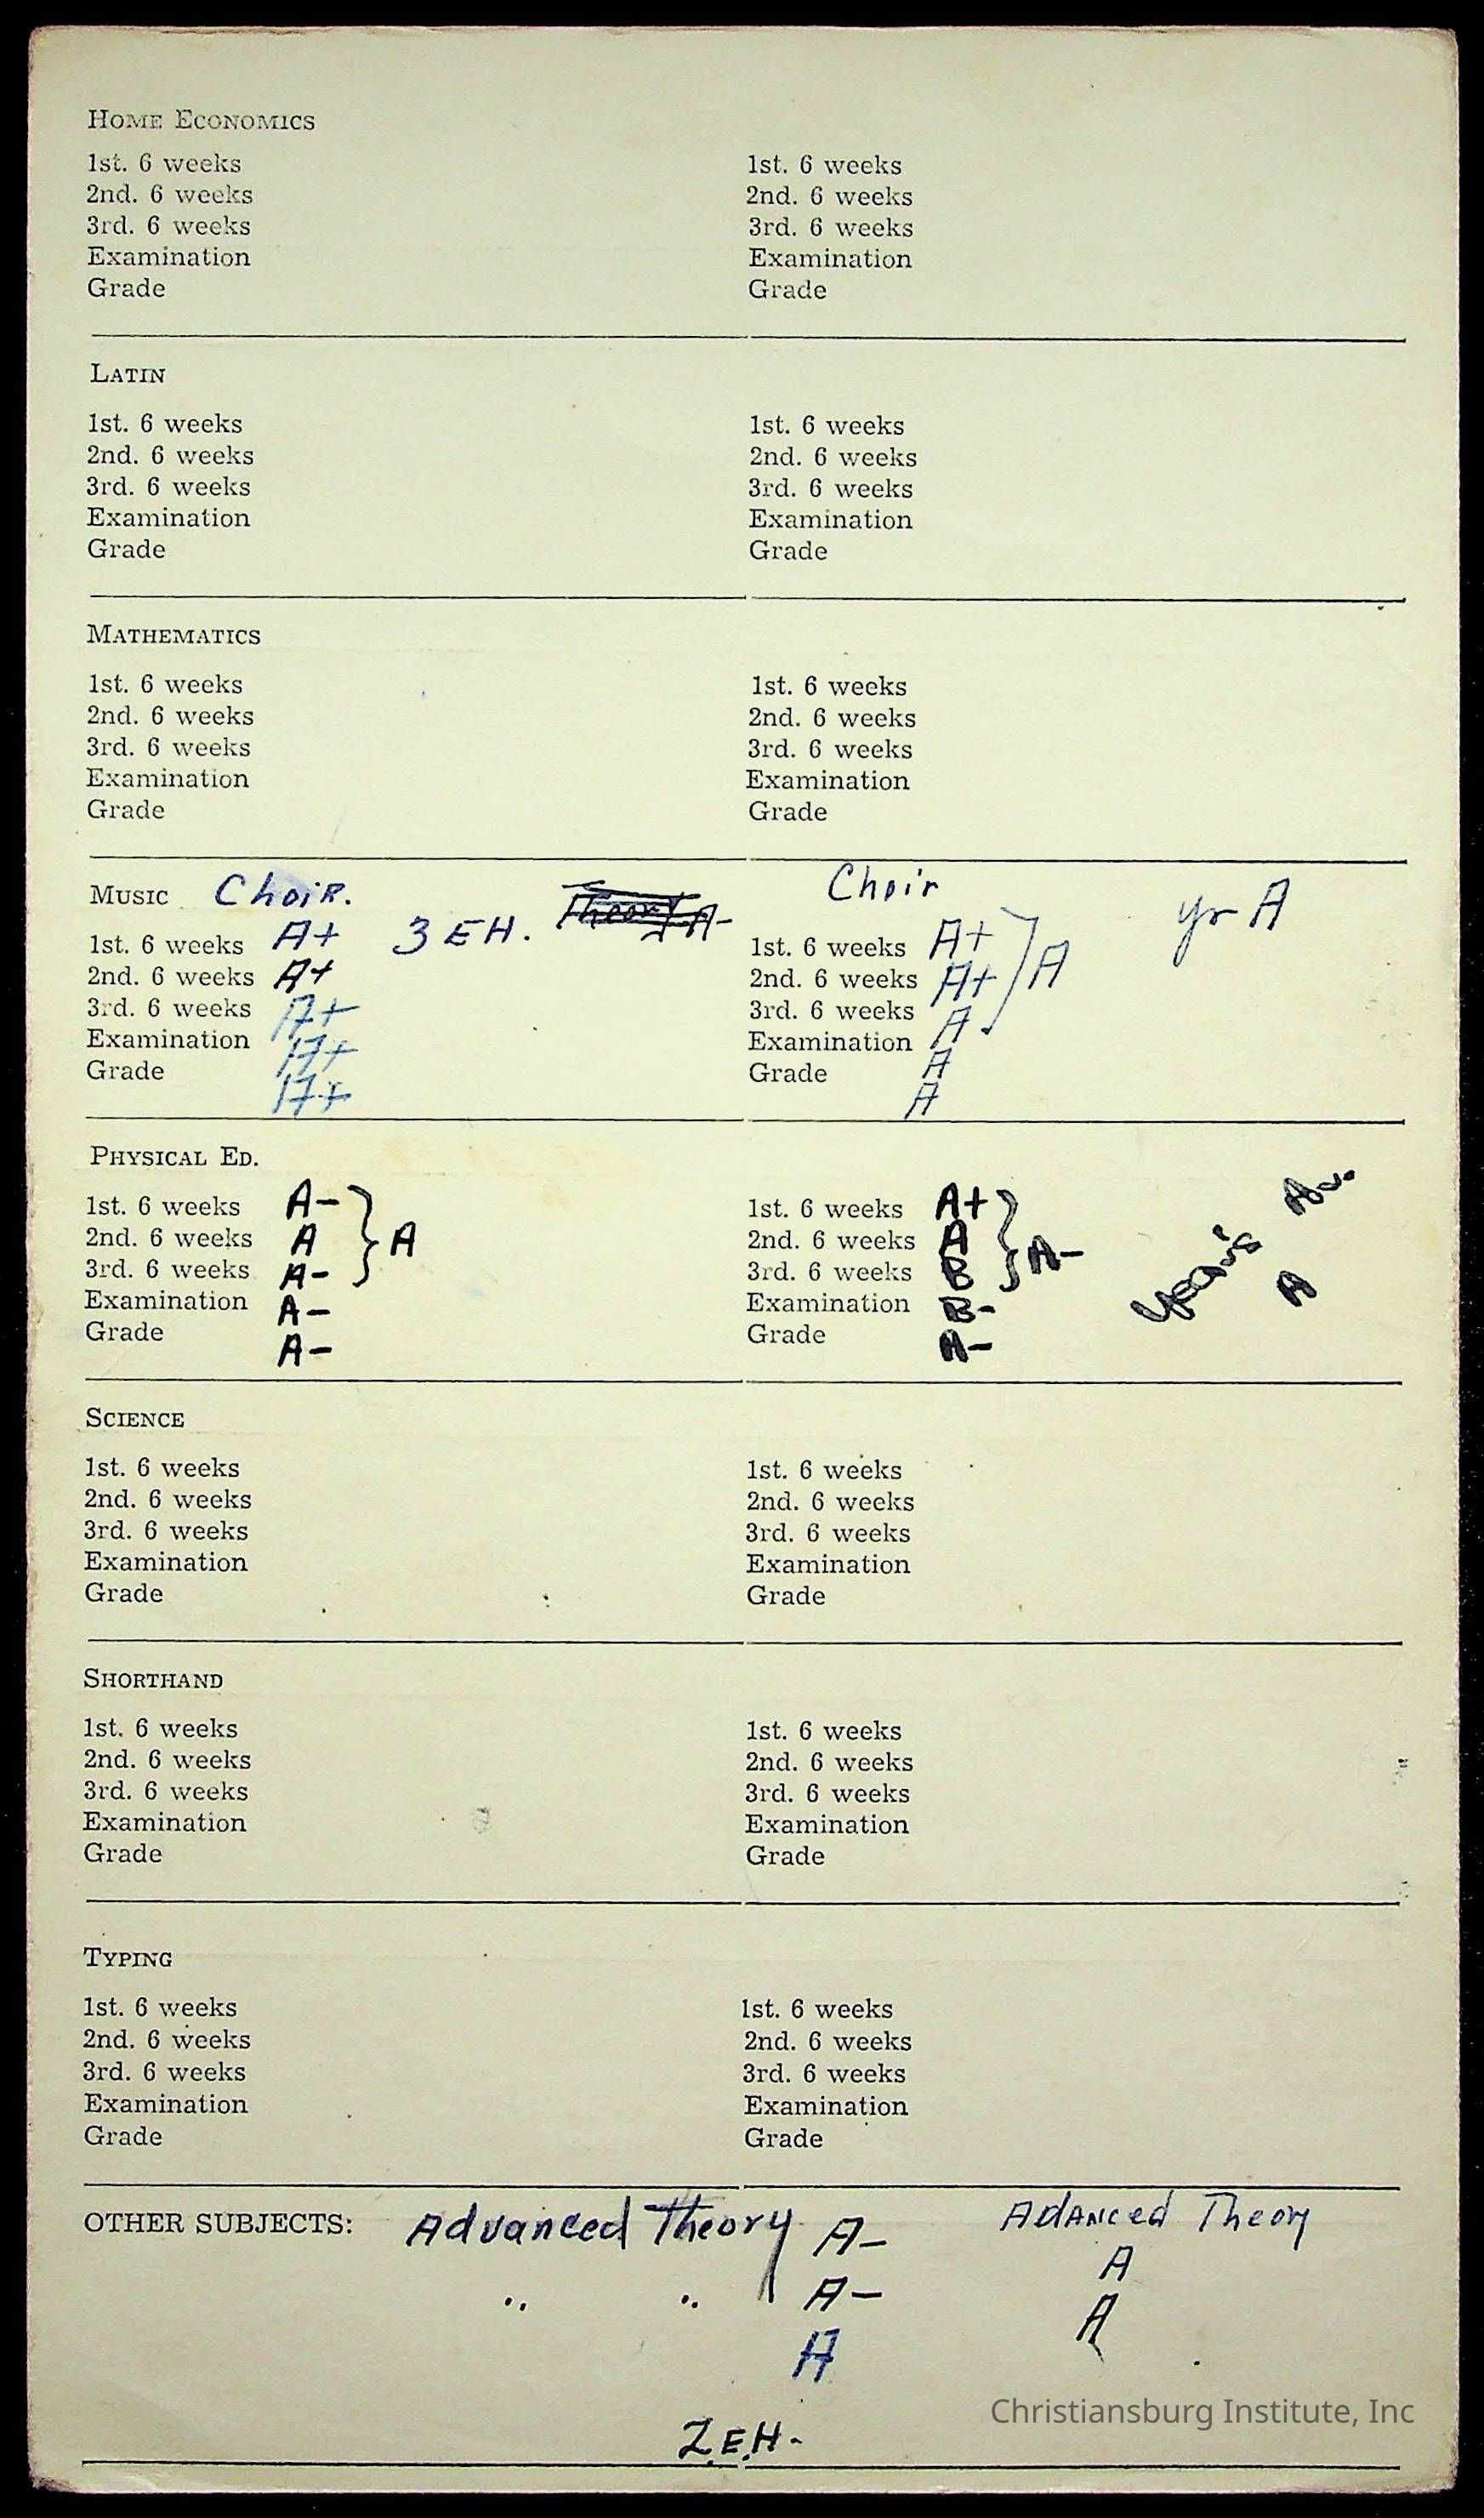 HOME ECONOMICS
1st. 6 weeks 1st. 6 weeks
2nd. 6 weeks 2nd. 6 weeks
3rd. 6 weeks 3rd. 6 weeks
Examination Examination
Grade Grade
LATIN
1st. 6 weeks 1st. 6 weeks
2nd. 6 weeks 2nd. 6 weeks
3rd. 6 weeks 3rd. 6 weeks
Examination Examination
Grade Grade
MATHEMATICS
1st. 6 weeks 1st. 6 weeks
2nd. 6 weeks 2nd. 6 weeks
3rd. 6 weeks 3rd. 6 weeks
Examination Examination
Grade Grade
MUSIC Choir. Theory A- Choir yr A
1st. 6 weeks A+ 3 EH. 1st. 6 weeks A+
2nd. 6 weeks A+ 2nd. 6 weeks A+ A
3rd. 6 weeks A+ 3rd. 6 weeks A
Examination A+ Examination A
Grade A+ Grade A
PHYSICAL ED.
1st. 6 weeks A- 1st. 6 weeks A+
2nd. 6 weeks A A 2nd. 6 weeks A A-
3rd. 6 weeks A- 3rd. 6 weeks B A
Examination A- Examination B-
Grade A- Grade A-
SCIENCE
1st. 6 weeks 1st. 6 weeks
2nd. 6 weeks 2nd. 6 weeks
3rd. 6 weeks 3rd. 6 weeks
Examination Examination
Grade Grade
SHORTHAND
1st. 6 weeks 1st. 6 weeks
2nd. 6 weeks 2nd. 6 weeks
3rd. 6 weeks 3rd. 6 weeks
Examination Examination
Grade Grade
TYPING
1st. 6 weeks 1st. 6 weeks
2nd. 6 weeks 2nd. 6 weeks
3rd. 6 weeks 3rd. 6 weeks
Examination Examination
Grade Grade
OTHER SUBJECTS: Advanced Theory A- Adanced Theory
" " A- A
A A
Christiansburg Institute, Inc
Z.E.H.-